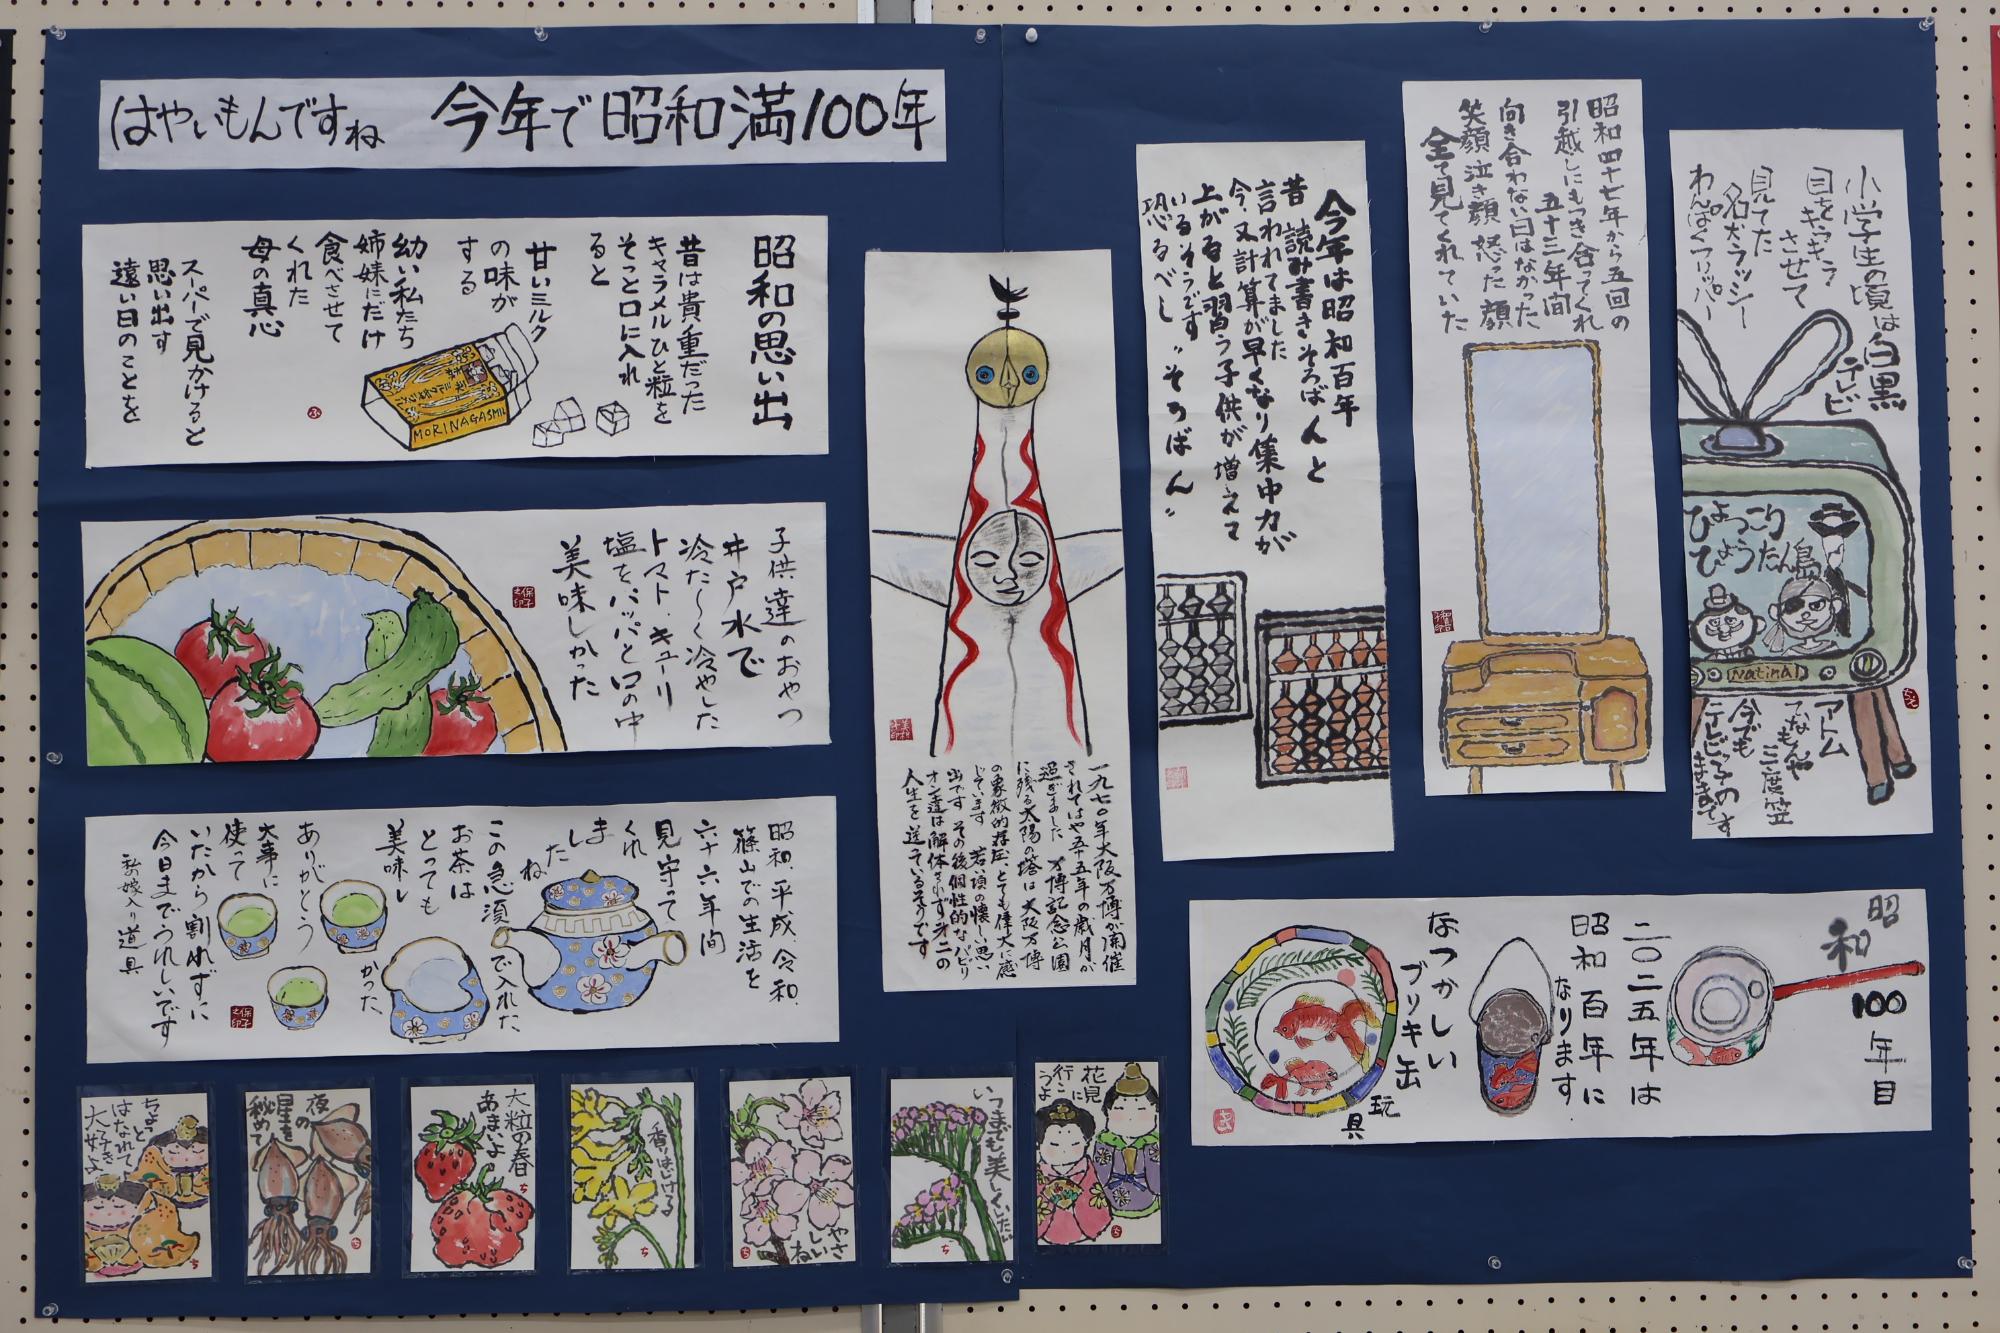 はやいもんですね 今年で昭和満100年
昭和の思い出
昔は貴重だった
キャラメルひと粒を
そっと口に入れ
ると
甘いミルク
の味が
する
幼い私たち
姉妹にだけ
食べさせて
くれた
母の真心
スーパーで見かけると
思い出す
遠い日のことを
MORINAGA'S MIL
子供達のおやつ
井戸水で
冷た〜く冷やした
トマト、キューリ
塩をパッパと口の中
美味しかった
昭和、平成、令和、
篠山での生活を
六十六年間
見守って
くれ
まし
たね
この急須で入れた
お茶は
とっても
美味し
かった
ありがとう
大事に
使って
いたから割れずに
今日までうれしいです
私の嫁入り道具
一九七〇年大阪万博が開催
されてはや五十五年の歳月が
過ぎました 万博記念公園
に残る太陽の塔は大阪万博
の象徴的存在とても偉大に感
じています 若い頃の懐しい思い
出です その後個性的なパビリ
オン達は解体されず第二の
人生を送っているそうです
今年は昭和百年
昔 読み書きそろばんと
言われてました
今、又計算が早くなり集中力が
上がると習う子供が増えて
いるそうです
恐るべし〝そろばん〟
昭和四十七年から五回の
引越しにもつき合ってくれ
五十三年間
向き合わない日はなかった、
笑顔 泣き顔 怒った顔
全て見てくれていた
小学生の頃は白黒
テレビ
目をキラキラ
させて
見てた
名犬ラッシー
わんぱくフリッパー
ひょっこり
ひょうたん島
Natinal
アトム
てなもんや
三度笠
今でも
テレビっ子の
ままです
昭和
100
年目
二〇二五年は
昭和百年に
なります
なつかしい
ブリキ缶
玩具
ちょっと
はなれて
大好きよ
夜の
星を
秘めて
大粒の春
あまいよ
香りはじける
やさ
しい
ね
いつまでも美しくいたい
花見に
行こ
うよ